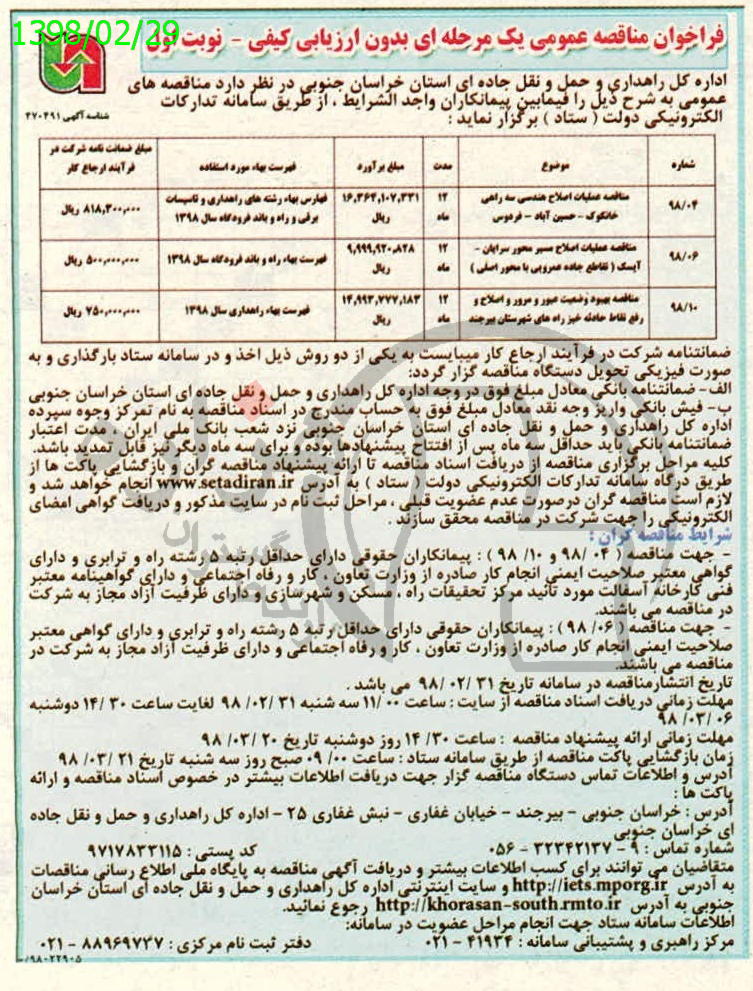 1398/02/29
فراخوان مناقصه عمومی یک مرحله ای بدون ارزیابی کیفی - نوبت اول
اداره کل راهداری و حمل و نقل جاده ای استان خراسان جنوبی در نظر دارد مناقصه های
عمومی به شرح ذیل را فیمابین پیمانکاران واجد الشرایط ، از طریق سامانه تدارکات
الکترونیکی دولت ( ستاد ) برگزار نماید :
شناسه آگهی ۴۷۰۴۹۱
شماره موضوع مدت مبلغ برآورد فهرست بهاء مورد استفاده مبلغ ضمانت نامه شرکت در
فرآیند ارجاع کار
۹۸/۰۴ مناقصه عملیات اصلاح هندسی سه راهی ۱۲ ۱۶,۳۶۴,۱۰۷,۳۳۱ فهارس بهاء رشته های راهداری و تاسیسات ۸۱۸,۳۰۰,۰۰۰ ریال
خانکوک - حسین آباد - فردوس ماه ریال برقی و راه و باند فرودگاه سال ۱۳۹۸
۹۸/۰۶ مناقصه عملیات اصلاح مسیر محور سرایان - ۱۲ ۹,۹۹۹,۹۲۰,۸۲۸ فهرست بهاء راه و باند فرودگاه سال ۱۳۹۸ ۵۰۰,۰۰۰,۰۰۰ ریال
آیسک ( تقاطع جاده عمرویی با محور اصلی ) ماه ریال
۹۸/۱۰ مناقصه بهبود وضعیت عبور و مرور و اصلاح و ۱۲ ۱۴,۹۹۳,۷۷۷,۱۸۳ فهرست بهاء راهداری سال ۱۳۹۸ ۷۵۰,۰۰۰,۰۰۰ ریال
رفع نقاط حادثه خیز راه های شهرستان بیرجند ماه ریال
ضمانتنامه شرکت در فرآیند ارجاع کار میبایست به یکی از دو روش ذیل اخذ و در سامانه ستاد بارگذاری و به
صورت فیزیکی تحویل دستگاه مناقصه گزار گردد:
الف- ضمانتنامه بانکی معادل مبلغ فوق در وجه اداره کل راهداری و حمل و نقل جاده ای استان خراسان جنوبی
ب- فیش بانکی واریز وجه نقد معادل مبلغ فوق به حساب مندرج در اسناد مناقصه به نام تمرکز وجوه سپرده
اداره کل راهداری و حمل و نقل جاده ای استان خراسان جنوبی نزد شعب بانک ملی ایران ، مدت اعتبار
ضمانتنامه بانکی باید حداقل سه ماه پس از افتتاح پیشنهادها بوده و برای سه ماه دیگر نیز قابل تمدید باشد.
کلیه مراحل برگزاری مناقصه از دریافت اسناد مناقصه تا ارائه پیشنهاد مناقصه گران و بازگشایی پاکت ها از
طریق درگاه سامانه تدارکات الکترونیکی دولت ( ستاد ) به آدرس www.setadiran.ir انجام خواهد شد و
لازم است مناقصه گران درصورت عدم عضویت قبلی ، مراحل ثبت نام در سایت مذکور و دریافت گواهی امضای
الکترونیکی را جهت شرکت در مناقصه محقق سازند .
شرایط مناقصه گران :
- جهت مناقصه ( ۰۴ /۹۸ و ۱۰/ ۹۸ ) : پیمانکاران حقوقی دارای حداقل رتبه ۵ رشته راه و ترابری و دارای
گواهی معتبر صلاحیت ایمنی انجام کار صادره از وزارت تعاون ، کار و رفاه اجتماعی و دارای گواهینامه معتبر
فنی کارخانه آسفالت مورد تائید مرکز تحقیقات راه ، مسکن و شهرسازی و دارای ظرفیت آزاد مجاز به شرکت
در مناقصه می باشند.
- جهت مناقصه ( ۰۶ /۹۸ ) : پیمانکاران حقوقی دارای حداقل رتبه ۵ رشته راه و ترابری و دارای گواهی معتبر
صلاحیت ایمنی انجام کار صادره از وزارت تعاون ، کار و رفاه اجتماعی و دارای ظرفیت آزاد مجاز به شرکت در
مناقصه می باشند.
تاریخ انتشارمناقصه در سامانه تاریخ ۳۱ /۰۲ /۹۸ می باشد .
مهلت زمانی دریافت اسناد مناقصه از سایت : ساعت ۰۰ /۱۱ سه شنبه ۳۱ /۰۲ /۹۸ لغایت ساعت ۳۰ /۱۴ دوشنبه
۰۶ /۰۳ /۹۸
مهلت زمانی ارائه پیشنهاد مناقصه : ساعت ۳۰/ ۱۴ روز دوشنبه تاریخ ۲۰ /۰۳ /۹۸
زمان بازگشایی پاکت مناقصه از طریق سامانه ستاد : ساعت ۰۰/ ۰۹ صبح روز سه شنبه تاریخ ۲۱ /۰۳ /۹۸
آدرس و اطلاعات تماس دستگاه مناقصه گزار جهت دریافت اطلاعات بیشتر در خصوص اسناد مناقصه و ارائه
پاکت ها :
آدرس : خراسان جنوبی - بیرجند - خیابان غفاری - نبش غفاری ۲۵ - اداره کل راهداری و حمل و نقل جاده
ای خراسان جنوبی
شماره تماس : ۹ - ۳۲۳۴۲۱۳۷ - ۰۵۶ کد پستی : ۹۷۱۷۸۳۳۱۱۵
متقاضیان می توانند برای کسب اطلاعات بیشتر و دریافت آگهی مناقصه به پایگاه ملی اطلاع رسانی مناقصات
به آدرس http://iets.mporg.ir و سایت اینترنتی اداره کل راهداری و حمل و نقل جاده ای استان خراسان
جنوبی به آدرس http://khorasan-south.rmto.ir رجوع نمائید.
اطلاعات سامانه ستاد جهت انجام مراحل عضویت در سامانه:
مرکز راهبری و پشتیبانی سامانه : ۴۱۹۳۴ - ۰۲۱ دفتر ثبت نام مرکزی : ۸۸۹۶۹۷۳۷ - ۰۲۱
۹۸۰۲۲۹۰۵